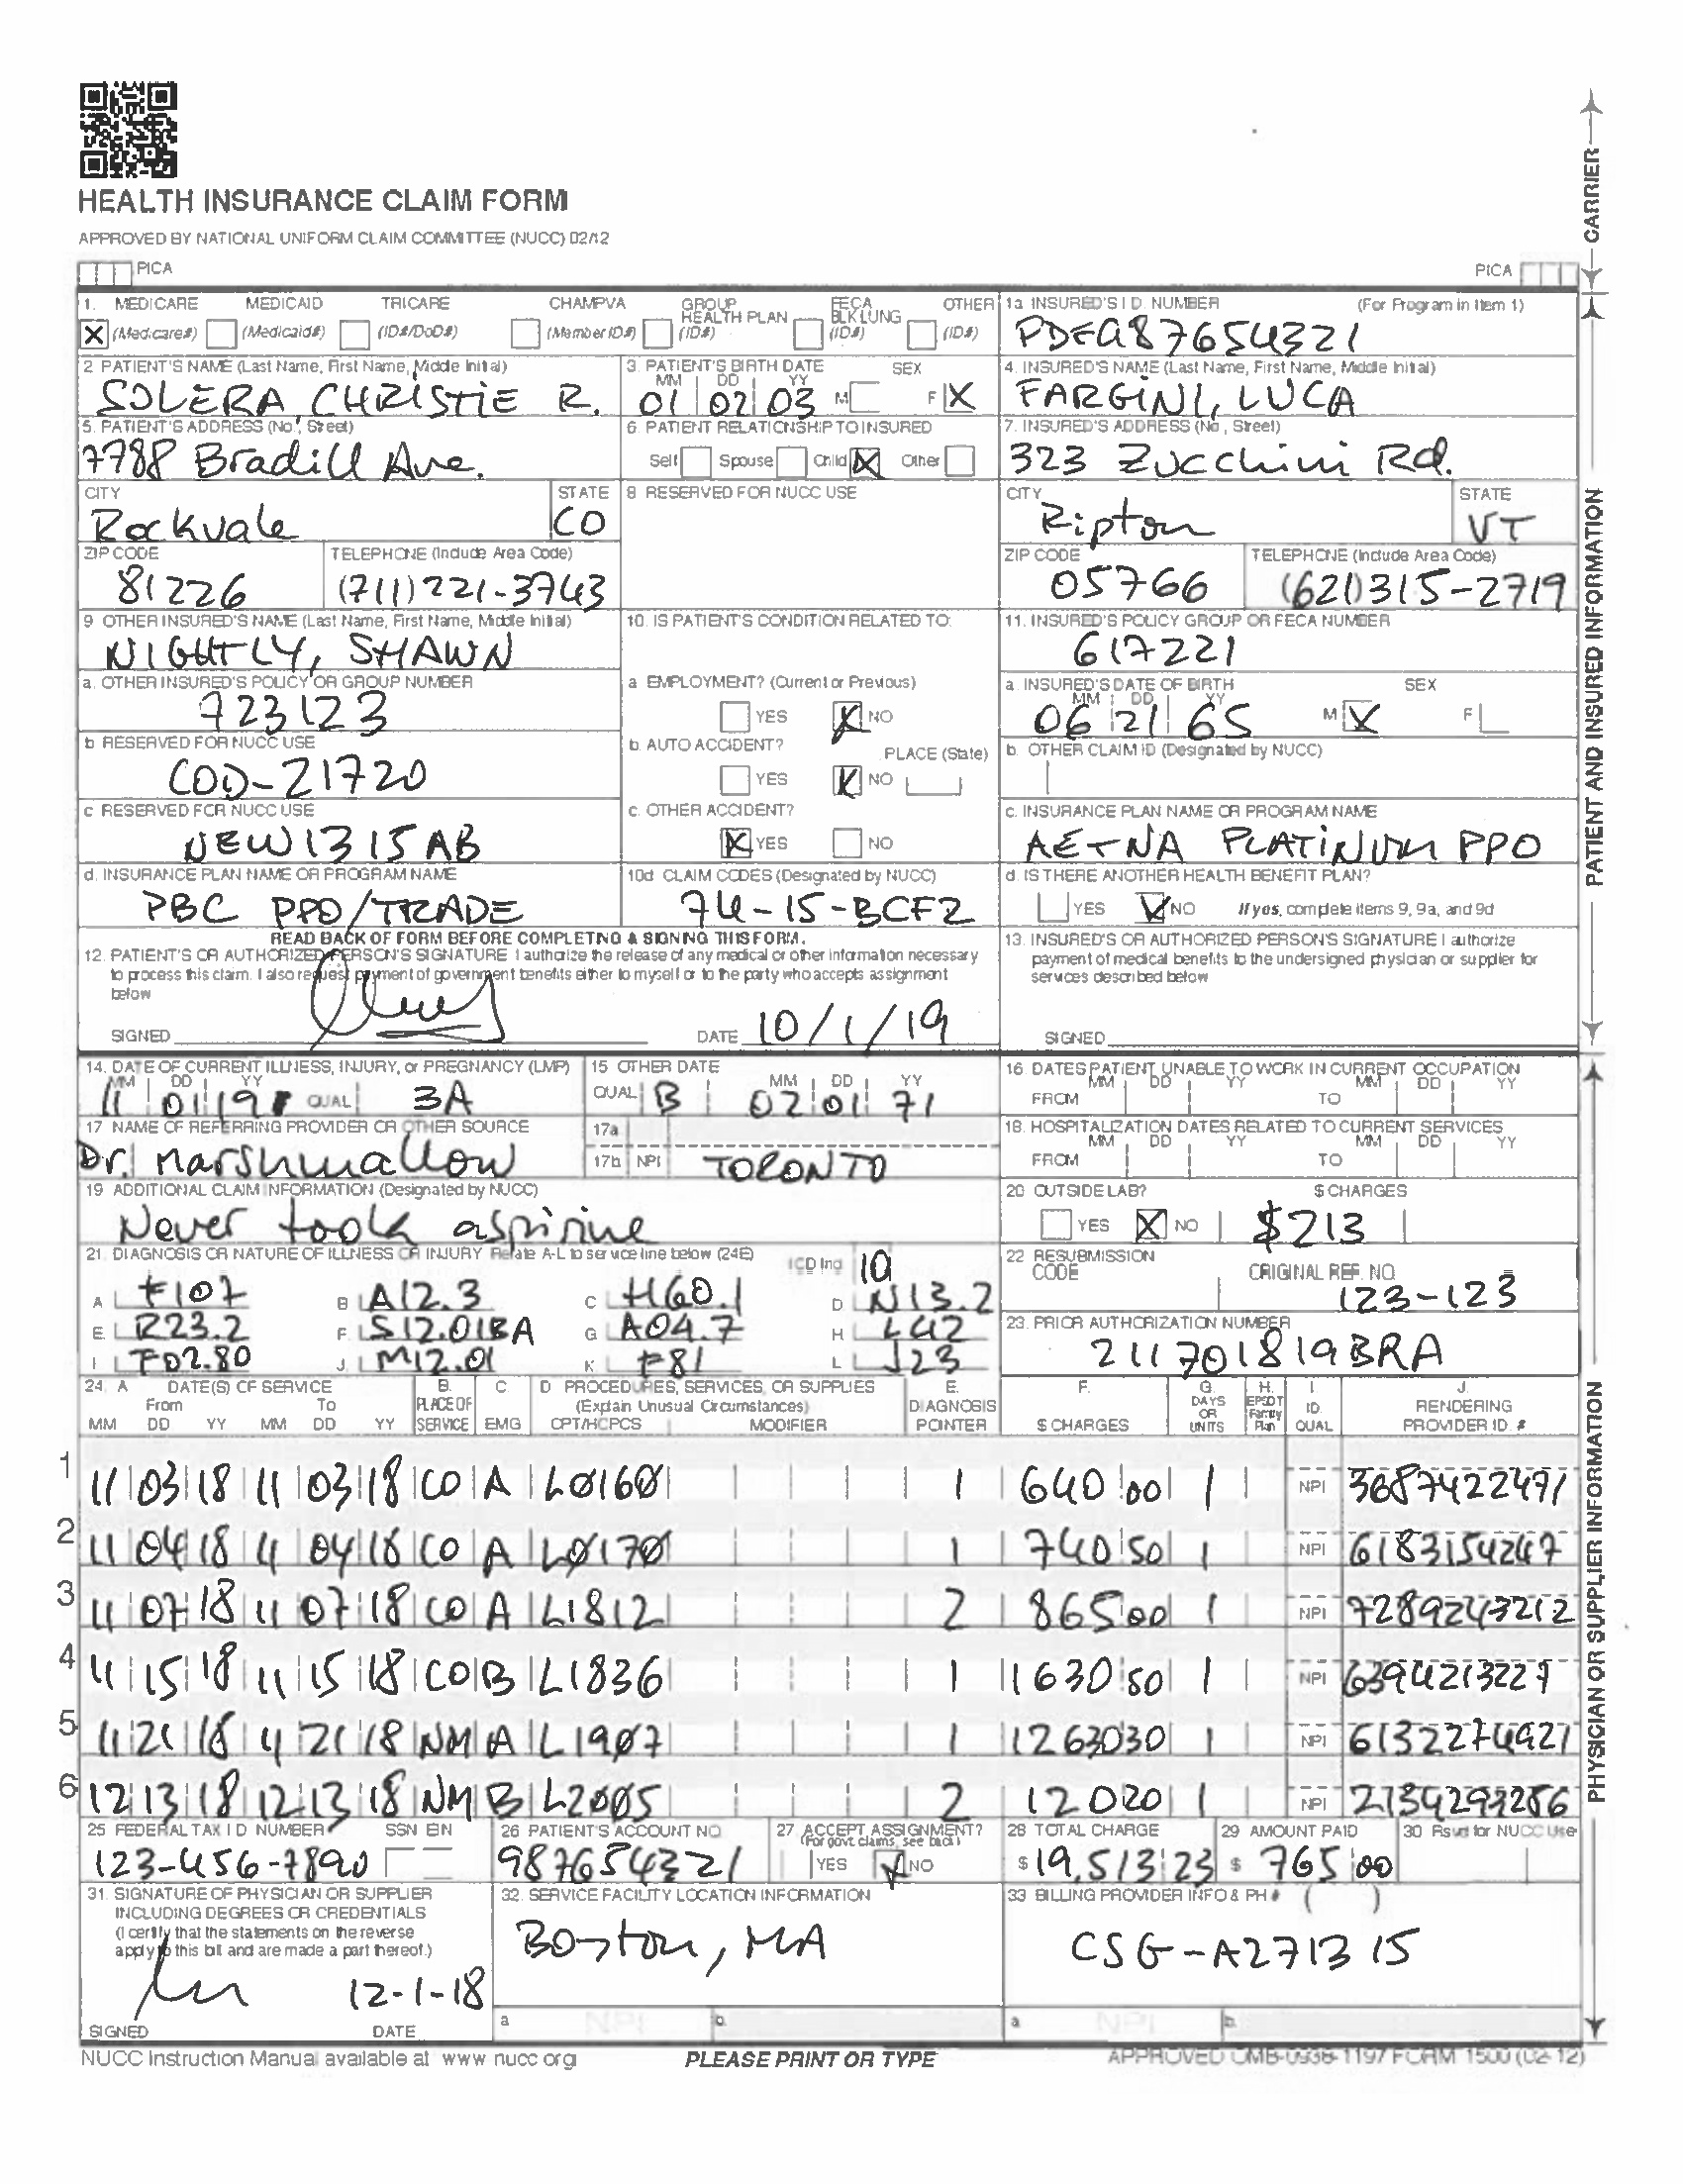 HEALTH INSURANCE CLAIM FORM
APPROVED BY NATIONAL UNIFORM CLAIM COMMITTEE (NUCC) 02/12
PICA
PICA
CARRIER
1. MEDICARE MEDICAID TRICARE CHAMPVA GROUP HEALTH PLAN FECA BLK LUNG OTHER
X (Medicare#) (Medicaid#) (ID#/DoD#) (Member ID#) (ID#) (ID#) (ID#)
1a INSURED'S I.D. NUMBER (For Program in Item 1)
87654321
2 PATIENT'S NAME (Last Name, First Name, Middle Initial)
SOLERA, CHRISTIE R.
3. PATIENT'S BIRTH DATE SEX
MM DD YY
01 02 03 M F X
4. INSURED'S NAME (Last Name, First Name, Middle Initial)
FARGINI, LUCA
5. PATIENT'S ADDRESS (No., Street)
7788 Bradill Ave.
6. PATIENT RELATIONSHIP TO INSURED
Self Spouse Child X Other
7. INSURED'S ADDRESS (No., Street)
323 Zucchini Rd.
CITY STATE
Rockvale CO
8 RESERVED FOR NUCC USE
CITY STATE
Ripton VT
ZIP CODE TELEPHONE (Include Area Code)
81226 (711) 221-3743
ZIP CODE TELEPHONE (Include Area Code)
05766 (621) 315-2719
9 OTHER INSURED'S NAME (Last Name, First Name, Middle Initial)
NIGHTLY, SHAWN
10. IS PATIENT'S CONDITION RELATED TO:
11. INSURED'S POLICY GROUP OR FECA NUMBER
617221
a. OTHER INSURED'S POLICY OR GROUP NUMBER
723123
a EMPLOYMENT? (Current or Previous)
YES X NO
a. INSURED'S DATE OF BIRTH SEX
MM DD YY
06 21 65 M X F
b RESERVED FOR NUCC USE
COD-21720
b. AUTO ACCIDENT? PLACE (State)
YES X NO
b. OTHER CLAIM ID (Designated by NUCC)
c RESERVED FOR NUCC USE
NEW1315AB
c. OTHER ACCIDENT?
X YES NO
c. INSURANCE PLAN NAME OR PROGRAM NAME
AETNA PLATINUM PPO
d. INSURANCE PLAN NAME OR PROGRAM NAME
PBC PPO/TRADE
10d CLAIM CODES (Designated by NUCC)
74-15-BCF2
d. IS THERE ANOTHER HEALTH BENEFIT PLAN?
YES X NO If yes, complete items 9, 9a, and 9d
READ BACK OF FORM BEFORE COMPLETNG & SIGNING THIS FORM.
12. PATIENT'S OR AUTHORIZED PERSON'S SIGNATURE I authorize the release of any medical or other information necessary
to process this claim. I also request payment of government benefits either to myself or to the party who accepts assignment
below
SIGNED DATE 10/1/19
13. INSURED'S OR AUTHORIZED PERSON'S SIGNATURE I authorize
payment of medical benefits to the undersigned physician or supplier for
services described below
SIGNED
PATIENT AND INSURED INFORMATION
14. DATE OF CURRENT ILLNESS, INJURY, or PREGNANCY (LMP)
MM DD YY
11 01 19 QUAL 3A
15 OTHER DATE
QUAL B MM DD YY
02 01 71
16. DATES PATIENT UNABLE TO WORK IN CURRENT OCCUPATION
MM DD YY MM DD YY
FROM TO
17 NAME OF REFERRING PROVIDER OR OTHER SOURCE
Dr. Marshmallow
17a
17b NPI TORONTO
18. HOSPITALIZATION DATES RELATED TO CURRENT SERVICES
MM DD YY MM DD YY
FROM TO
19 ADDITIONAL CLAIM INFORMATION (Designated by NUCC)
Never took aspirine
20 OUTSIDE LAB? $ CHARGES
YES X NO $213
21. DIAGNOSIS OR NATURE OF ILLNESS OR INJURY Relate A-L to service line below (24E) ICD Ind 10
A F107 B A12.3 C H60.1 D N13.2
E R23.2 F. S12.01BA G A04.7 H L42
I F02.80 J. M12.01 K F81 L J23
22 RESUBMISSION CODE ORIGINAL REF. NO.
123-123
23. PRIOR AUTHORIZATION NUMBER
211701819BRA
24. A DATE(S) OF SERVICE B. PLACE OF SERVICE C EMG D PROCEDURES, SERVICES, OR SUPPLIES E. DIAGNOSIS POINTER F. $ CHARGES G. DAYS OR UNITS H. EPSDT Family Plan I. ID. QUAL J. RENDERING PROVIDER ID. #
From To (Explain Unusual Circumstances)
MM DD YY MM DD YY CPT/HCPCS MODIFIER
1 11 03 18 11 03 18 CO A L0160 1 640 00 1 NPI 3687422491
2 11 04 18 11 04 18 CO A L0170 1 740 50 1 NPI 6183154247
3 11 07 18 11 07 18 CO A L1812 2 865 00 1 NPI 7289243212
4 11 15 18 11 15 18 CO B L1836 1 1630 50 1 NPI 6394213227
5 11 21 18 11 21 18 NM A L1907 1 12630 30 1 NPI 6132274921
6 12 13 18 12 13 18 NM B L2005 2 120 20 1 NPI 2134293286
25 FEDERAL TAX I.D. NUMBER SSN EIN
123-456-7890
26 PATIENT'S ACCOUNT NO.
987654321
27 ACCEPT ASSIGNMENT?
(For govt. claims, see back)
YES X NO
28 TOTAL CHARGE
$ 19,513 23
29 AMOUNT PAID
$ 765 00
30 Rsvd for NUCC Use
31. SIGNATURE OF PHYSICIAN OR SUPPLIER
INCLUDING DEGREES OR CREDENTIALS
(I certify that the statements on the reverse
apply to this bill and are made a part thereof.)
12-1-18
SIGNED DATE
32. SERVICE FACILITY LOCATION INFORMATION
Boston, MA
a NPI b.
33 BILLING PROVIDER INFO & PH # ( )
CSG-A271315
a NPI b
PHYSICIAN OR SUPPLIER INFORMATION
NUCC Instruction Manual available at www nucc org
PLEASE PRINT OR TYPE
APPROVED OMB-0938-1197 FORM 1500 (02-12)